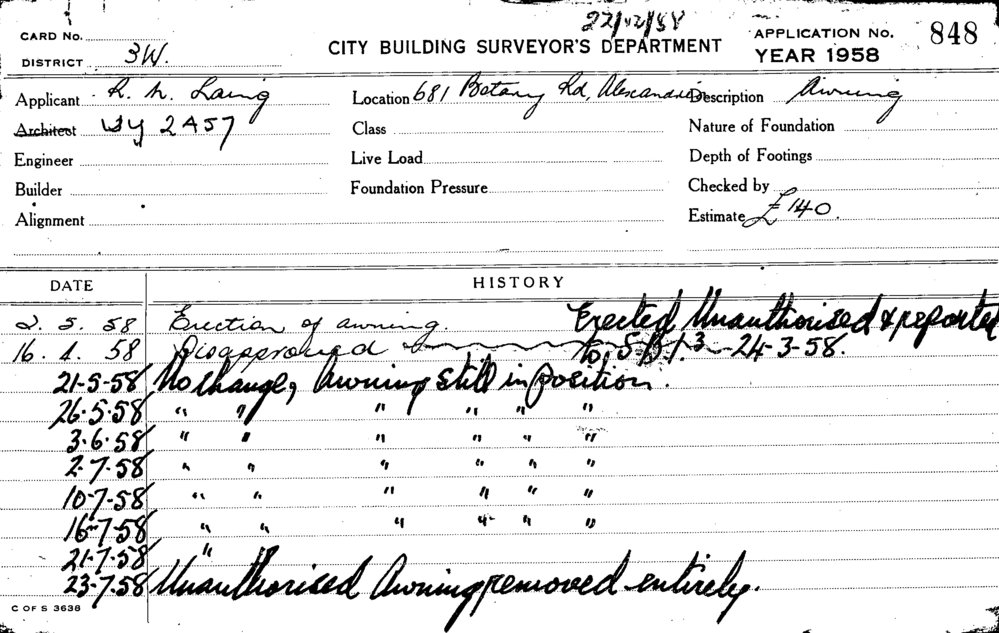 22/12/58
CARD No.
CITY BUILDING SURVEYOR'S DEPARTMENT
APPLICATION No. 848
DISTRICT 3W.
YEAR 1958
Applicant R. N. Laing
Location 681 Botany Rd, Alexandria
Description Awning
Architect 2457
Class
Nature of Foundation
Engineer
Live Load
Depth of Footings
Builder
Foundation Pressure
Checked by
Alignment
Estimate £140.
DATE HISTORY
2. 5. 58 Erection of awning. Erected Unauthorised & reported
16. 58 Disapproved to, S.B.I. 24-3-58.
21-5-58 No change, Awning still in position.
26-5-58 " " " " " "
3-6-58 " " " " " "
2-7-58 " " " " " "
10-7-58 " " " " " "
16-7-58 " " " " " "
21-7-58 "
23-7-58 Unauthorised Awning removed entirely.
C OF S 3638